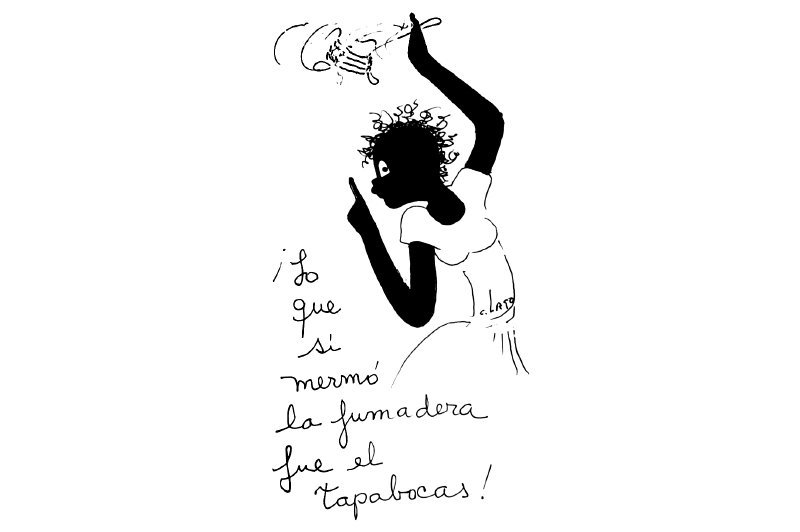 ¡Lo
que
sí
mermó
la fumadera
fue el
tapabocas!